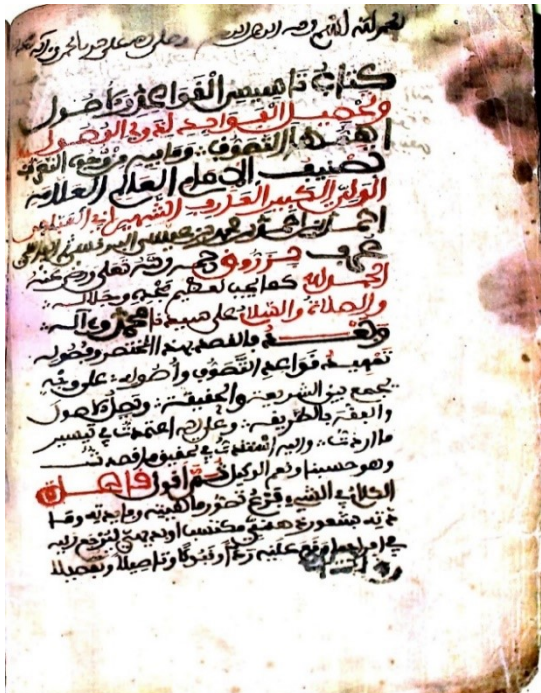 الحمد لله
كتاب تأسيس القواعد والأصول
وتحصيل الفوائد لذوي الوصول
تصنيف الإمام العالم العلامة
الولي الكبير العارف الشهير
أحمد بن أحمد بن محمد بن عيسى البرنسي
عرف بزروق رحمه الله تعالى ورضي عنه
الحمد لله كما يجب لعظيم مجده وجلاله
والصلاة والسلام على سيدنا محمد وءاله
وبعد فالقصد بهذا المختصر وفصوله
تمهيد فواعد التصوف وأصوله على وجه
يجمع بين الشريعة والحفيفة ويصل الأصول
والفقه بالطريفة وعلى الله اعتمدت في تيسير
ما أردت وإليه استندت في تحفيق ما فصدت
وهو حسبنا ونعم الوكيل ثم أفول فاعدة
الكلام في الشيء فرع تصور ماهيته وفائدته
بشعور ذهني مكتسب أو بديهي ليرجع إليه
في أفراد ما وفع عليه ردا وفبولا وتأصيلا وتفصيلا